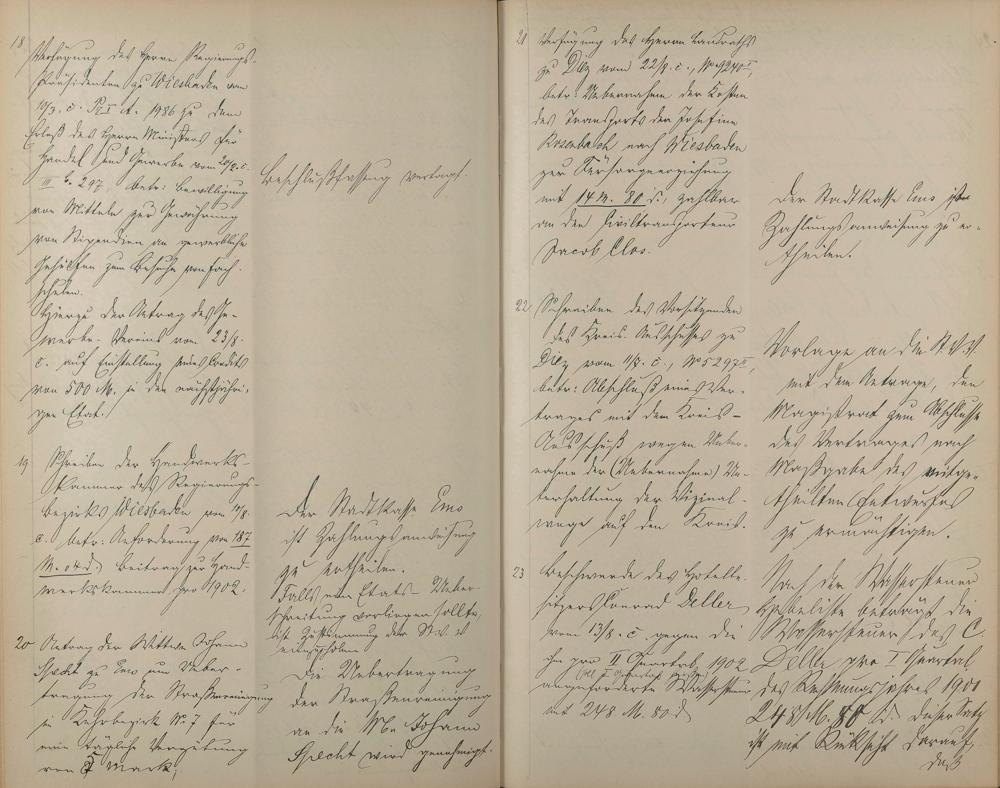 18
Verfügung des Herrn Regierungs-
Präsidenten zu Wiesbaden vom
10/3. c. Pr I A. 1986 zu dem
Erlaß des Herrn Ministers für
Handel und Gewerbe vom
III b. 297, betr: Bewilligung
von Mitteln zur Gewährung
von Stipendien an gewerbliche
Gehülfen zum Besuche von Fach-
schulen.
Hierzu der Antrag des Ge-
werbe-Vereins vom 23/8.
c. auf Einstellung eines Credits
von 500 M. in den nächstjähri-
gen Etat.
Beschlußfassung vertagt.
19
Schreiben der Handwerks-
kammer des Regierungs-
bezirks Wiesbaden vom
c. betr: Anforderung von 187
M. 04 d. Beitrag zur Hand-
werkskammer pro 1902.
Der Stadtkasse Ems
ist Zahlungsanweisung
zu ertheilen.
Falls eine Etats-Ueber-
schreitung vorliegen sollte,
ist Zustimmung der St.V. V.
einzuholen
20
Antrag der Wittwe Johann
Specht zu Ems um Ueber-
tragung der Straßenreinigung
in Kehrbezirk No 7 für
eine tägliche Vergütung
von Mark.
Die Uebertragung
der Straßenreinigung
an die Ww. Johann
Specht wird genehmigt.
21
Verfügung des Herrn Landraths
zu Diez vom 22/8. c., No 9240 II,
betr: Uebernahme der Kosten
des Transports der Josefine
Rosenbach nach Wiesbaden
zur Fürsorgeerziehung
mit 14 M. 80 d., zahlbar
an den Civiltransporteur
Jacob Clos.
Der Stadtkasse Ems ist
Zahlungsanweisung zu er-
theilen.
22
Schreiben des Vorsitzenden
des Kreis-Ausschusses zu
Diez vom c., No 5297 II,
betr: Abschluß eines Ver-
trages mit dem Kreis-
Ausschuß wegen Ueber-
nahme der (Uebernahme) Un-
terhaltung der Vizinal-
wege auf den Kreis.
Vorlage an die St.V.V.
mit dem Antrage, den
Magistrat zum Abschlusse
des Vertrages nach
Maßgabe des mitge-
theilten Entwurfes
zu ermächtigen.
23
Beschwerde des Hotelbe-
sitzers Conrad Deller
vom 13/8. c. gegen die
ihm pro II Quartal 1902
angeforderte Wassersteuer
mit 248 M. 80 d
Nach der Wassersteuer
Hebeliste beträgt die
Wassersteuer des C.
Deller pro I Quartal
des Rechnungsjahres 1901
248 M. 80 d. Dieser Satz
ist mit Rücksicht darauf,
daß